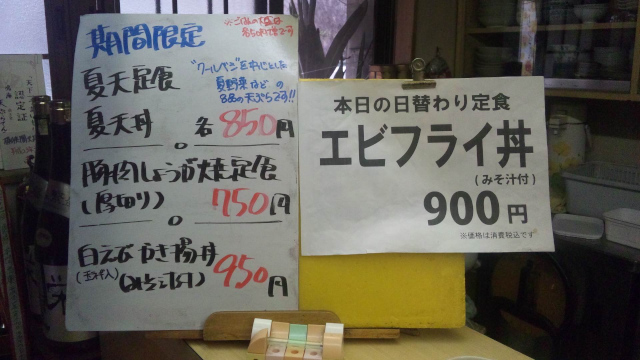 期間限定
※ごはんの大盛は
夏天定食
"クールベジ"を中心とした
夏野菜などの
8品の天ぷらです!!
夏天丼 各850円
豚肉しょうが焼定食
(厚切り) 750円
白えびかき揚丼
950円
本日の日替わり定食
エビフライ丼
(みそ汁付)
900円
※価格は消費税込です
認定証